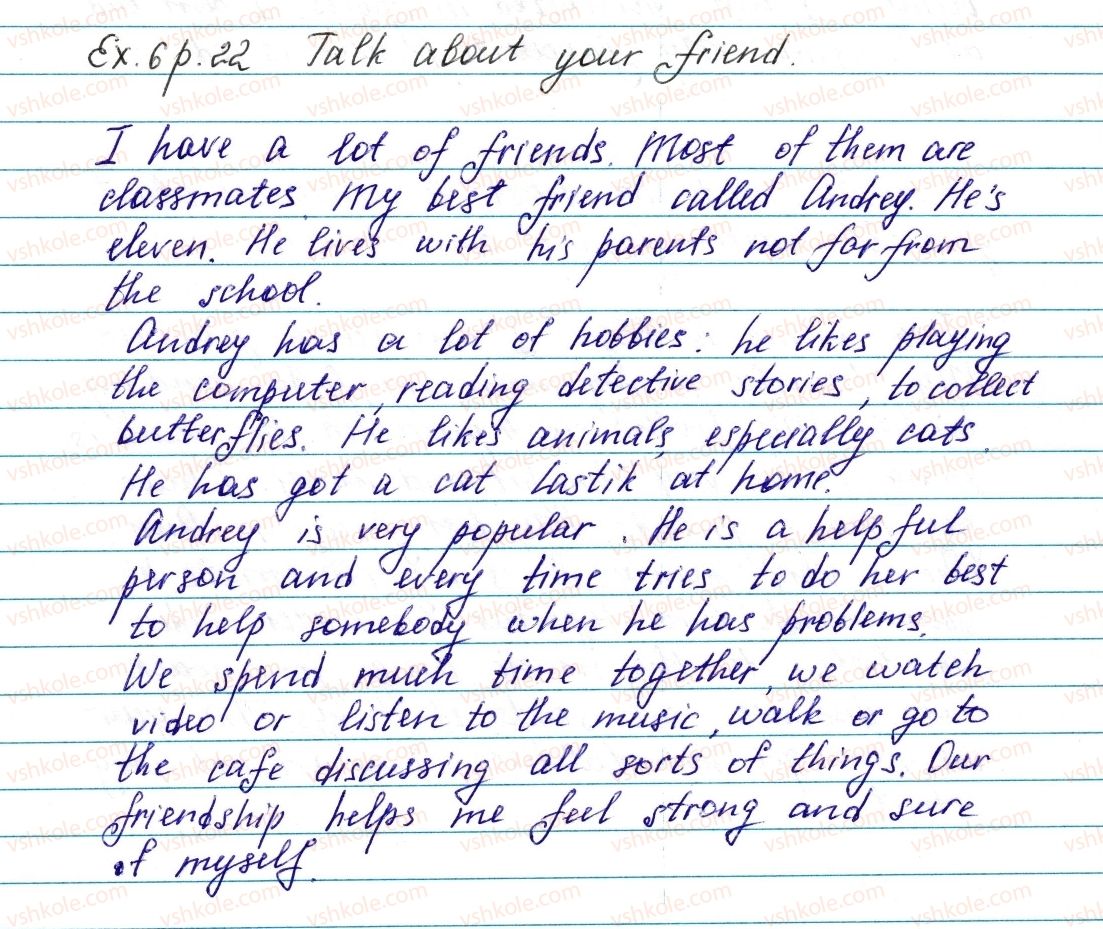 Ex. 6 p. 22 Talk about your friend.
I have a lot of friends. Most of them are
classmates. My best friend called Andrey. He's
eleven. He lives with his parents not far from
the school.
Andrey has a lot of hobbies: he likes playing
the computer, reading detective stories, to collect
butterflies. He likes animals, especially cats.
He has got a cat Lastik at home.
Andrey is very popular. He is a helpful
person and every time tries to do her best
to help somebody when he has problems.
We spend much time together, we watch
video or listen to the music, walk or go to
the cafe discussing all sorts of things. Our
friendship helps me feel strong and sure
of myself.
vshkole.com